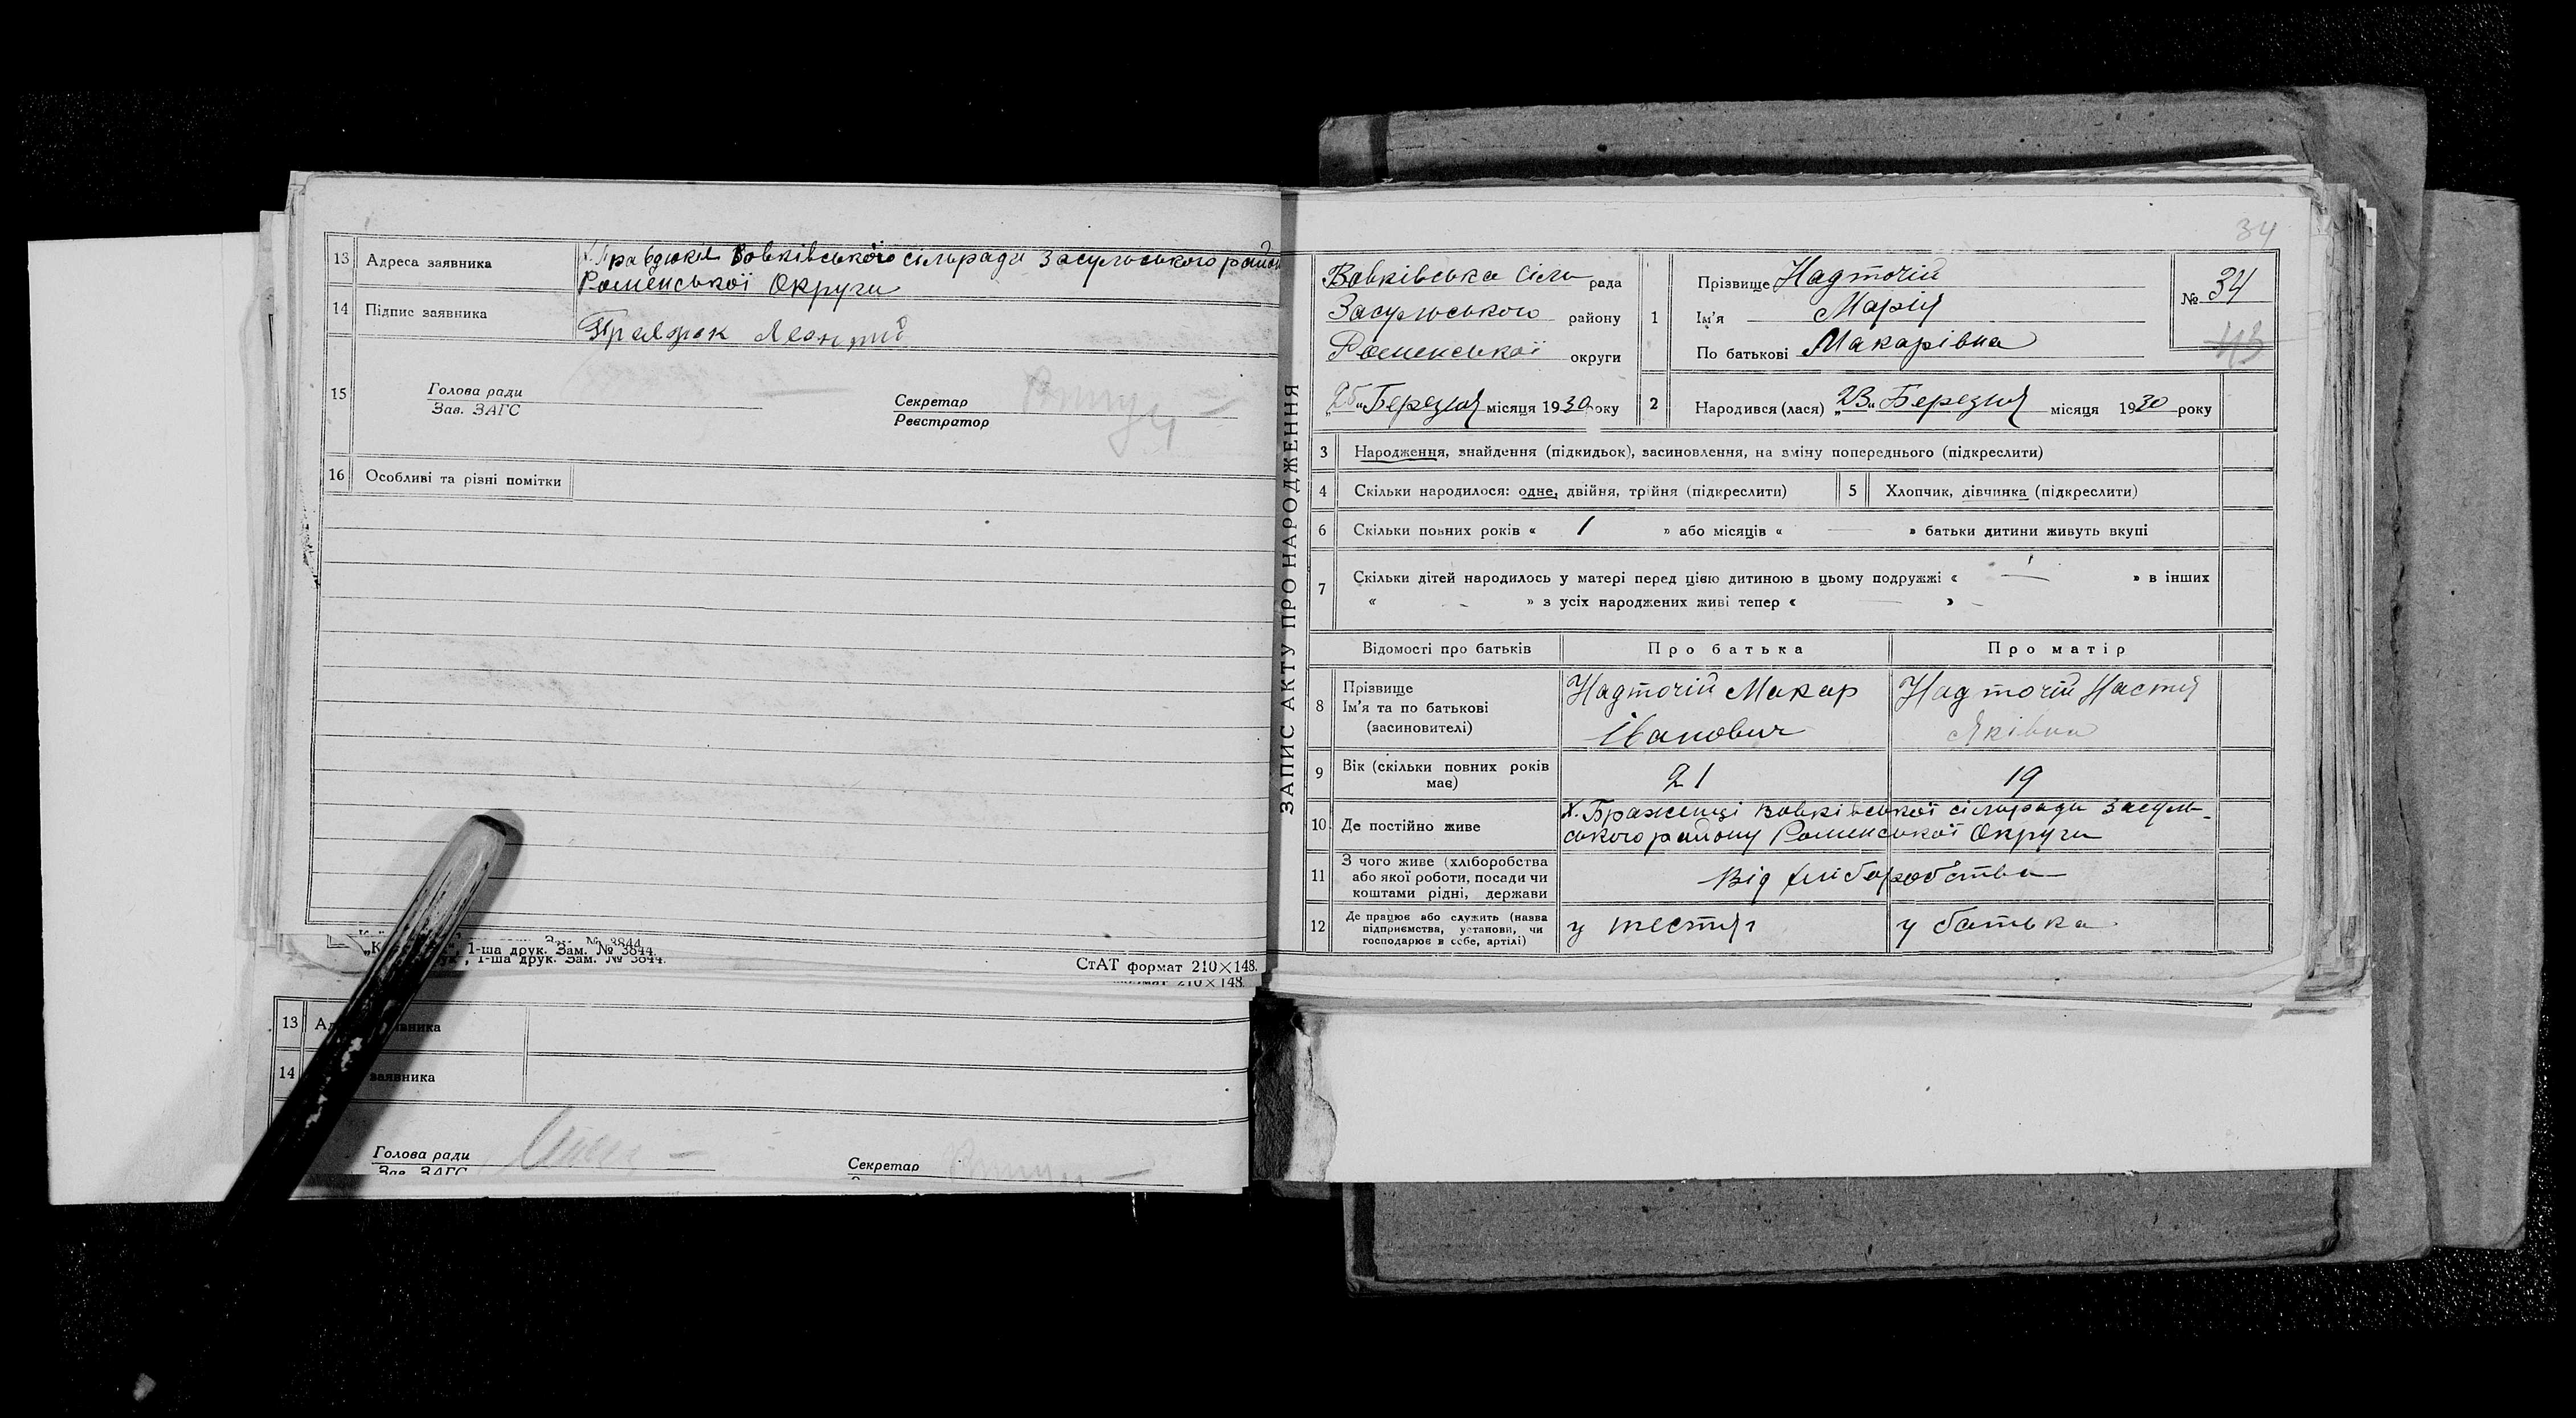 13 Адреса заявника х. Правдюки Вовківського сільради Засульського району
Роменської Округи
14 Підпис заявника Правдюк Леонтий
15 Голова ради
Зав. ЗАГС
Секретар
Реєстратор
16 Особливі та різні помітки
1-ша друк. Зам. № 3844.
СтАТ формат 210×148.
13
14 заявника
Голова ради
Зав. ЗАГС
Секретар
ЗАПИС АКТУ ПРО НАРОДЖЕННЯ
34
Вовківська Сіль рада
Засульського району
Роменської округи
„25“ Березня місяця 1930 року
1 Прізвище Надточій
Ім'я Марія
По батькові Макарівна
№ 34
43
2 Народився (лася) „23“ Березня місяця 1930 року
3 Народження, знайдення (підкидьок), засиновлення, на зміну попереднього (підкреслити)
4 Скільки народилося: одне, двійня, трійня (підкреслити) 5 Хлопчик, дівчинка (підкреслити)
6 Скільки повних років « 1 » або місяців « — » батьки дитини живуть вкупі
7 Скільки дітей народилось у матері перед цією дитиною в цьому подружжі « — » в інших
« - » з усіх народжених живі тепер « — »
Відомості про батьків Про батька Про матір
8 Прізвище
Ім'я та по батькові
(засиновителі)
Надточій Макар
Іванович
Надточій Настя
Яківна
9 Вік (скільки повних років
має) 21 19
10 Де постійно живе х. Браженці Вовківської сільради Засуль-
ського району Роменської Округи
11 З чого живе (хліборобства
або якої роботи, посади чи
коштами рідні, держави
Від хліборобства
12 Де працює або служить (назва
підприємства, установи, чи
господарює в себе, артілі)
у тестя у батька